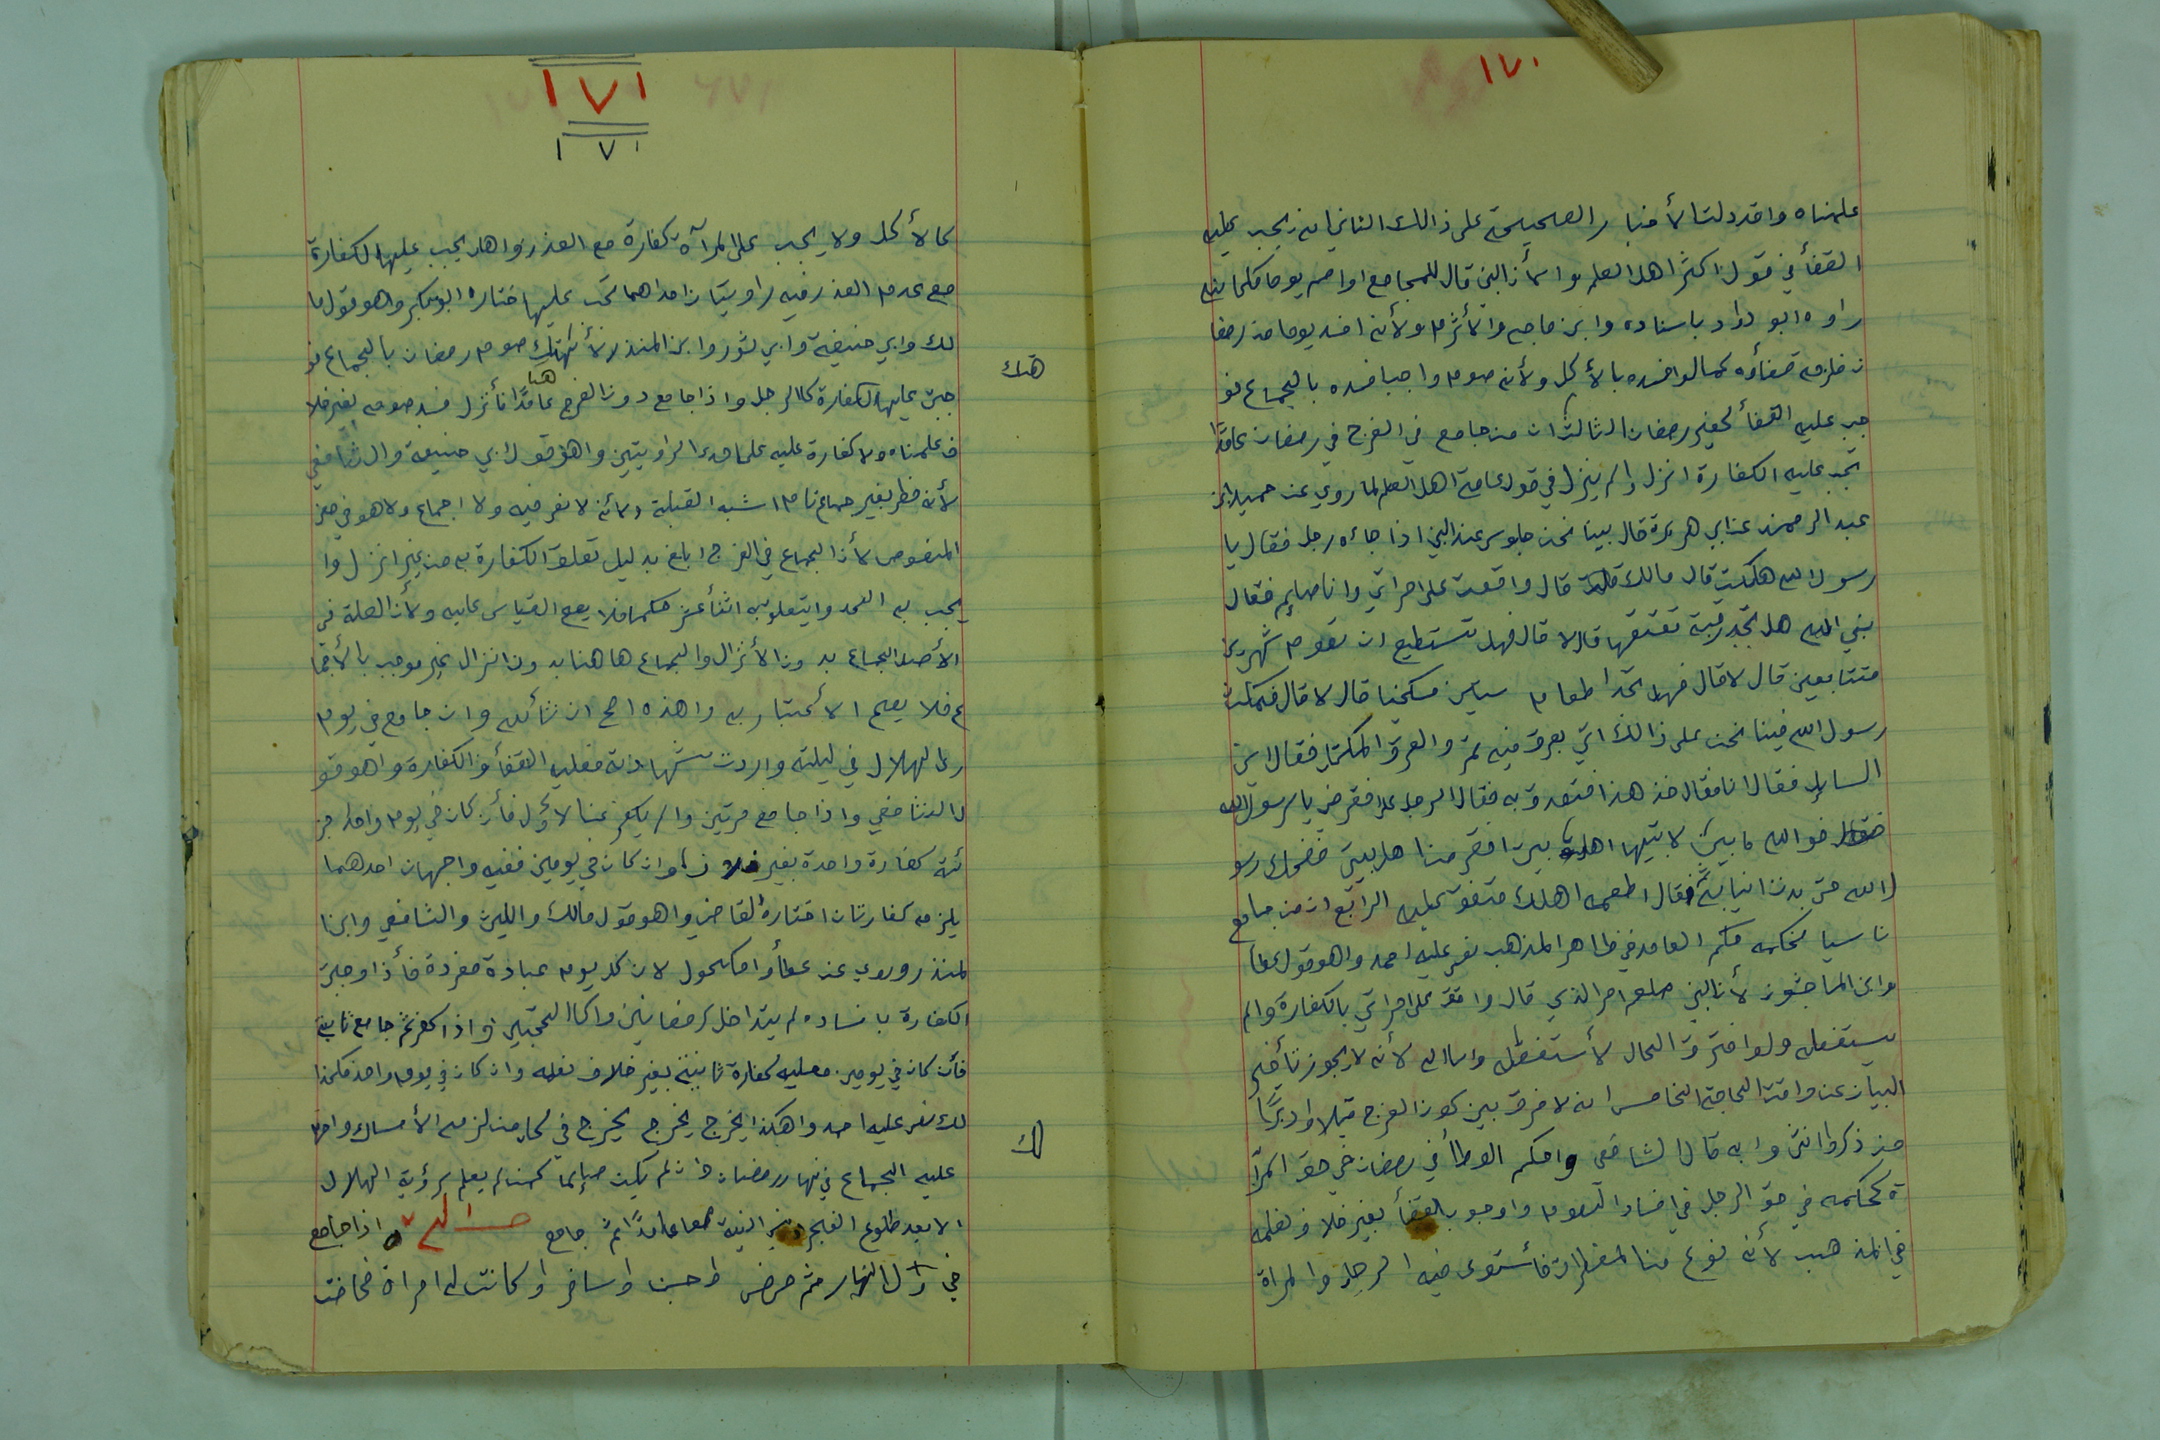 ١٧٠
علمناه واقد دلتا لأخبار الصحيحة على ذالك الثاني انه يجب عليه
القضأ في قول اكثر اهل العلم والأن النبي قال للمجامع اوا صم يوما مكانه
راوه ابو دواد باسناده وابن ماجه والأثرم ولأنه افسد يوما من رمضا
ن فلزمه قضأوه كما لو افسده بالأكل ولأنه صوم واجب افسده بالجماع فو
جب عليه القضأ كغير رمضان الثالث ان من جامع في الفرج في رمضان عامدًا
تجب عليه الكفارة انزل وا لم ينزل في قول عامة اهل العلم لما روي عن حميد ابن
عبد الرحمن عن ابي هريرة قال بينا نحن جلوس عند النبي اذا جاءه رجل فقال يا
رسول الله هلكت قال مالك قال واقعت على امراتي وانا صايم فقال
نبي الله هل تجد رقبة تعتقها قال لا قال فهل تستطيع ان تصوم شهرين
متتابعين قال لا قال فهل تجد اطعام ستين مسكينا قال لا قال فمكث
رسول الله فبينا نحن على ذالك اتي بعرق فيه تمر والعرق المكتل فقال اين
السايل فقال انا فقال خذ هذا فتصدق به فقال الرجل على افقر مني يا رسول الله
فوالله ما بين لابتيها اهل بيت افقر من اهل بيتي فضحك رسو
ل الله حتى بدت انيابه فقال اطعمه اهلك متفق عليه الرابع ان من جامع
ناسيا فحكمه حكم العامد في ظاهر المذهب نص عليه احمد واهو قول عطا
وابن الماجشون لأن النبي صلعم امر الذي قال واقعة على امراتي بالكفارة والم
يستفصله ولو افترق الحال لأستفصل واساله لأنه لا يجوز تأخير
البيان عن واقت الحاجة الخامس انه لا فرق بين كون الفرج قبلا او دبرًا
من ذكر وانثى وا به قال الشافعي واحكم الوطأ في رمضان في حق المرأ
ة كحكمه في حق الرجل في افساد الصوم واوجوب القضأ بغير خلاف نعلمه
في المذهب لأنه نوع من المفطرات فأستوى فيه الرجل والمراة
١٧١
١٧١
كالأكل ولا يجب على المرآة كفارة مع العذر واهل يجب عليها الكفارة
مع عدم العذر فيه راويتان احداهما تجب عليها اختاره ابو بكر واهو قول ما
لك وابي حنيفة وابي ثور وابن المنذر لأنها هتك صوم رمضان بالجماع فو
هتك
جبة عليها الكفارة كالرجل واذا جامع دون الفرج عامدًا فأنزل فسد صومه بغير خلا
ف علمناه ولا كفارة عليه على احدى الراويتين واهو قول ابي حنيفة والشافعي
لأنه فطر بغير جماع تام اشبه القبلة ولأنه لا نص فيه ولا اجماع ولا هو في معنى
المنصوص لأن الجماع في الفرج ابلغ بدليل تعلق الكفارة به من غير انزل وا
يجب به الحد وايتعلق به اثنأ عشر حكما فلا يصح القياس عليه ولأن العلة في
الأصل الجماع بدون الأنزال والجماع هاهنا بدون انزال غير موجب بالأجما
ع فلا يصح الأعتبار به واهذه اصح ان شأ الله وان جامع في يوم
رأى الهلال في ليلته واردت شهادته فعليه القضأ والكفارة واهو قو
ل الشافعي واذا جامع مرتين والم يكفر عن الأول فأن كان في يوم واحد اجز
ئته كفارة واحدة بغير خلاف وان كان في يومين ففيه واجهان احدهما
يلزمه كفارتان اختاره القاضي واهو قول مالك والليث والشافعي وابن ا
لمنذر وروي عن عطأ وامكحول لان كل يوم عبادة مفردة فأذا وجبة
الكفارة بافساده لم يتداخل كرمضانين واكالحجتين واذا كفر ثم جامع ثانية
فأن كان في يومين فعليه كفارة ثانية بغير خلاف نعلمه وان كان في يوم واحد فكذا
لك نص عليه احمد واهكذا يخرج يخرج يخرج في كل من لزمه الأمساك واحرم
لك
عليه الجماع في نهار رمضان وان لم يكن صائما كمن لم يعلم برؤية الهلال
الا بعد طلوع الفجر النية عامدًا ثم جامع اذا جامع
في اول النهار ثم مرض او جن او سافر او كانت له امراة فحاضت